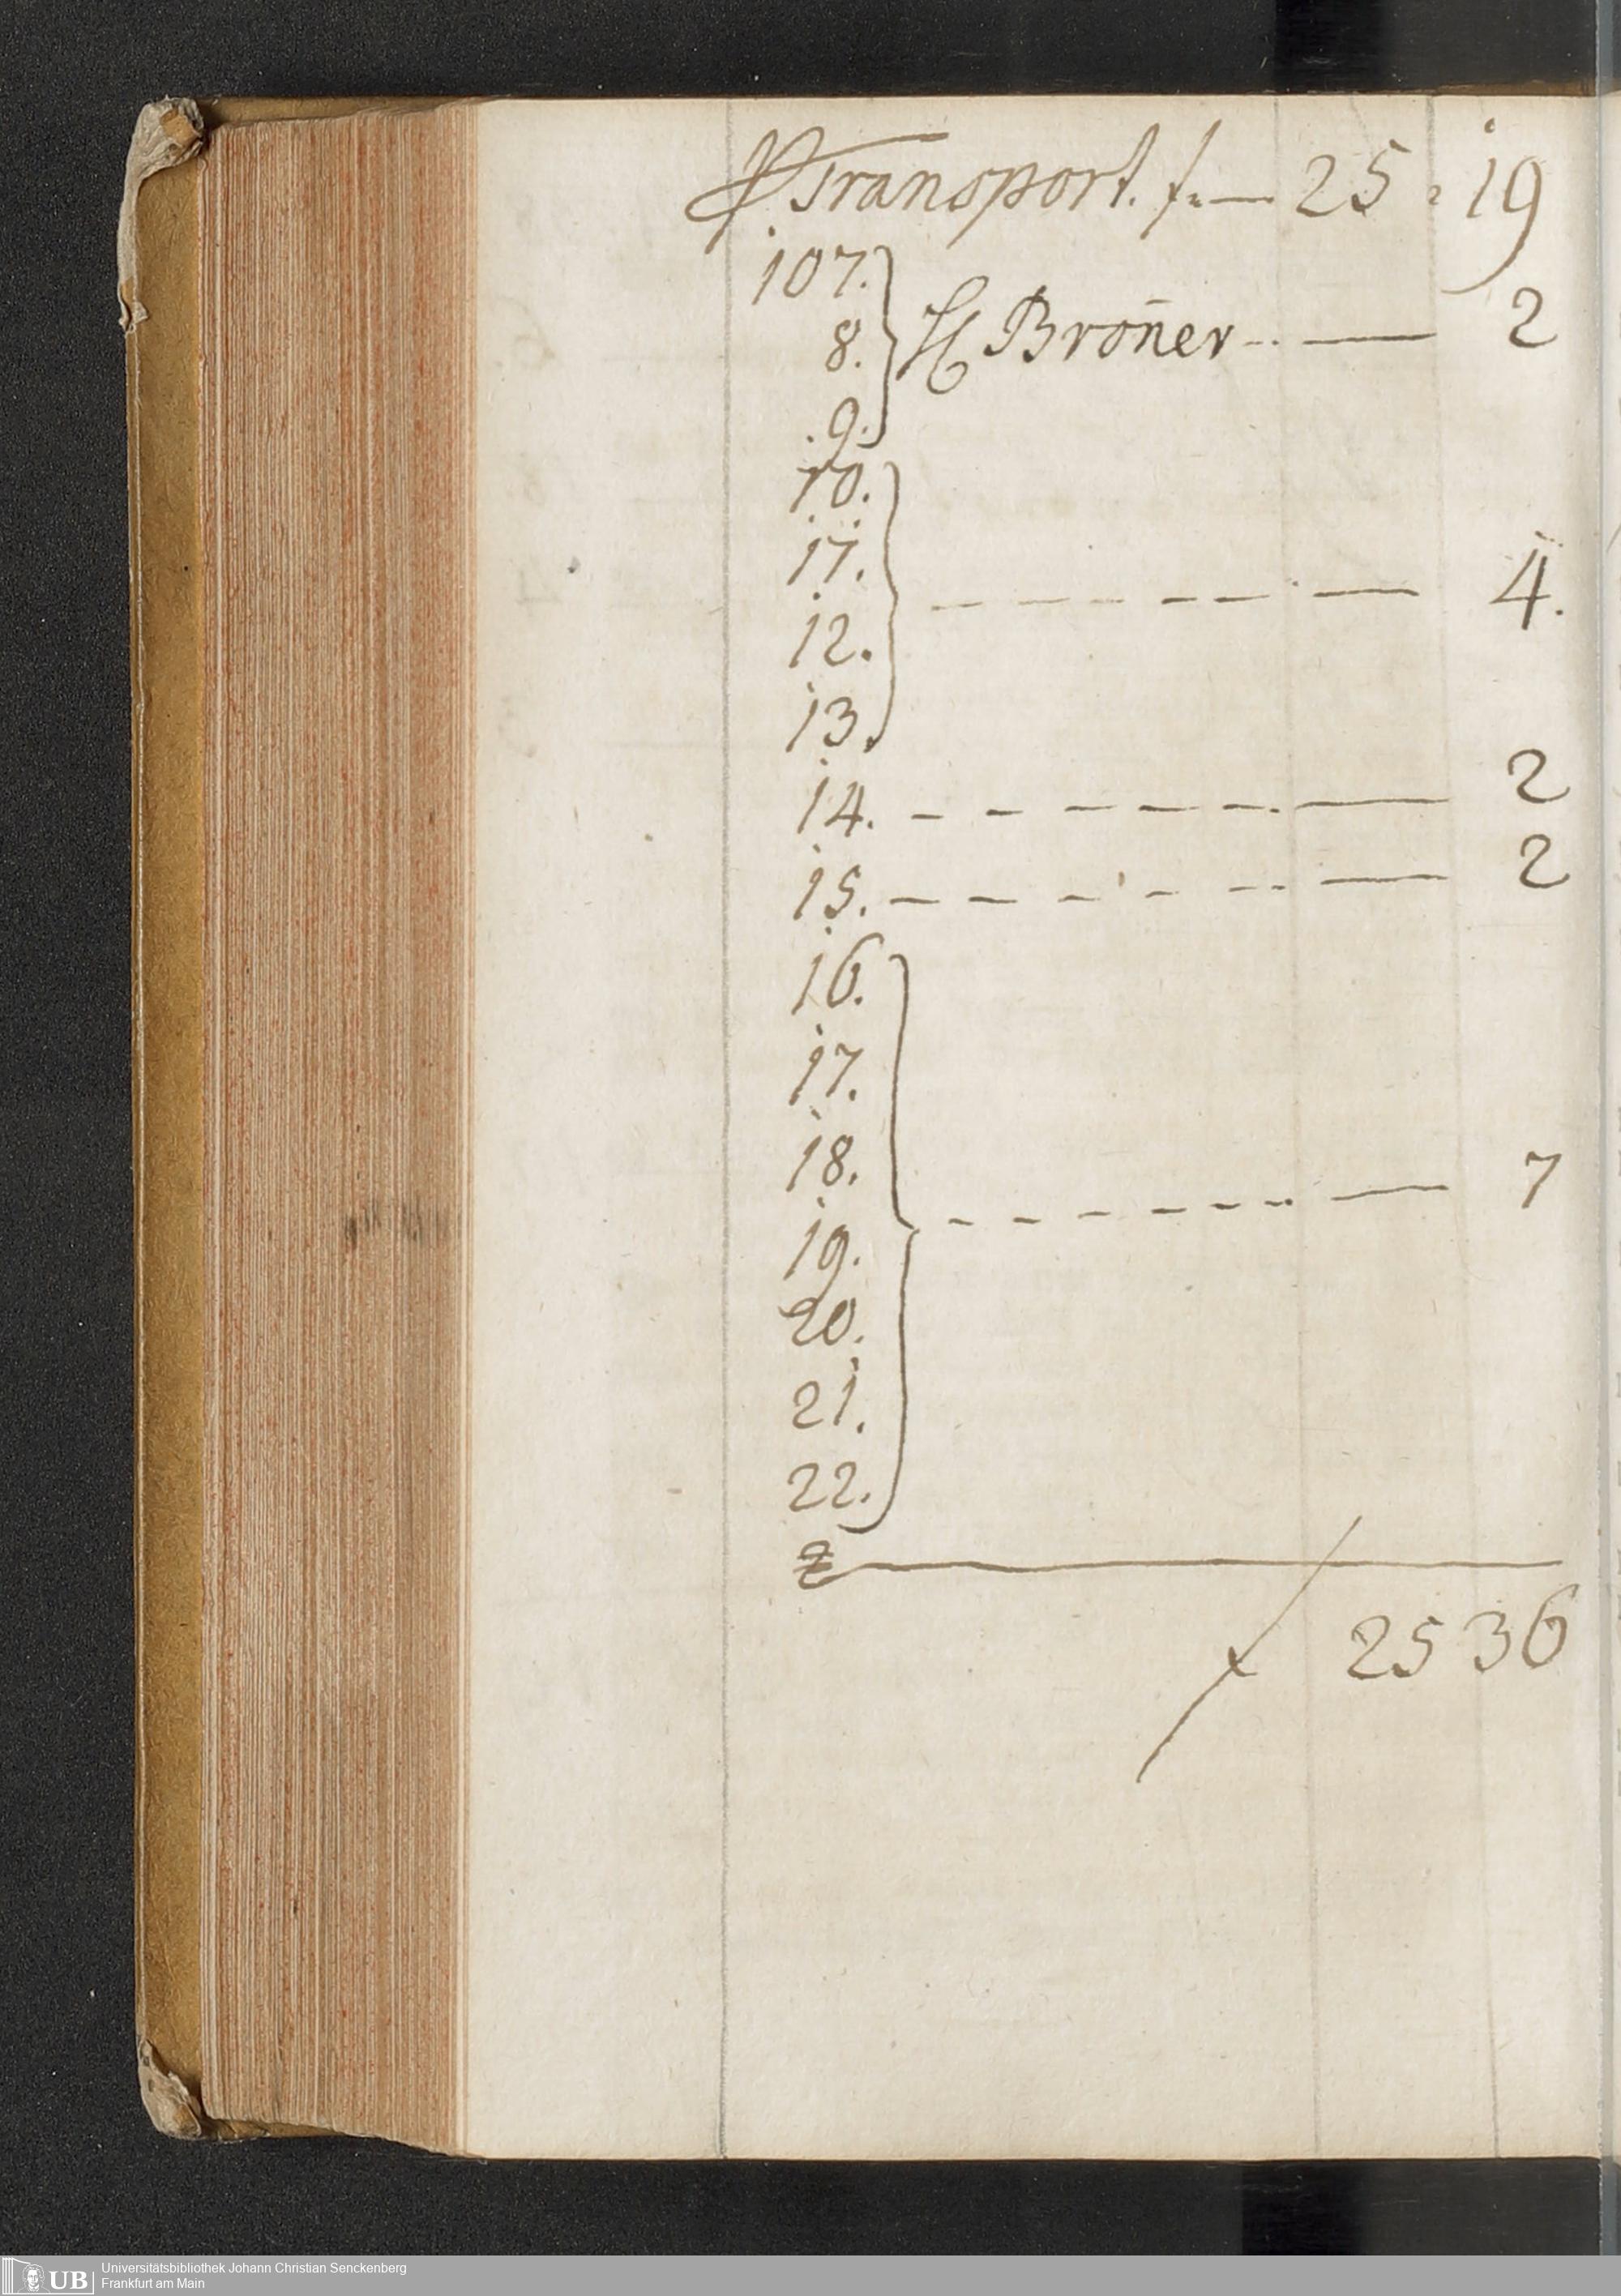 P Transport. f. — 25 " 19
107.
8. H Broñer -- — 2
.9.
10.
11.
— — — — — — 4.
12.
13.
14. — — — — — — 2
15. — — — — — — 2
16.
17.
18.
- - - - - - — 7
19.
20.
21.
22.
25 36
Universitätsbibliothek Johann Christian Senckenberg
Frankfurt am Main
UB